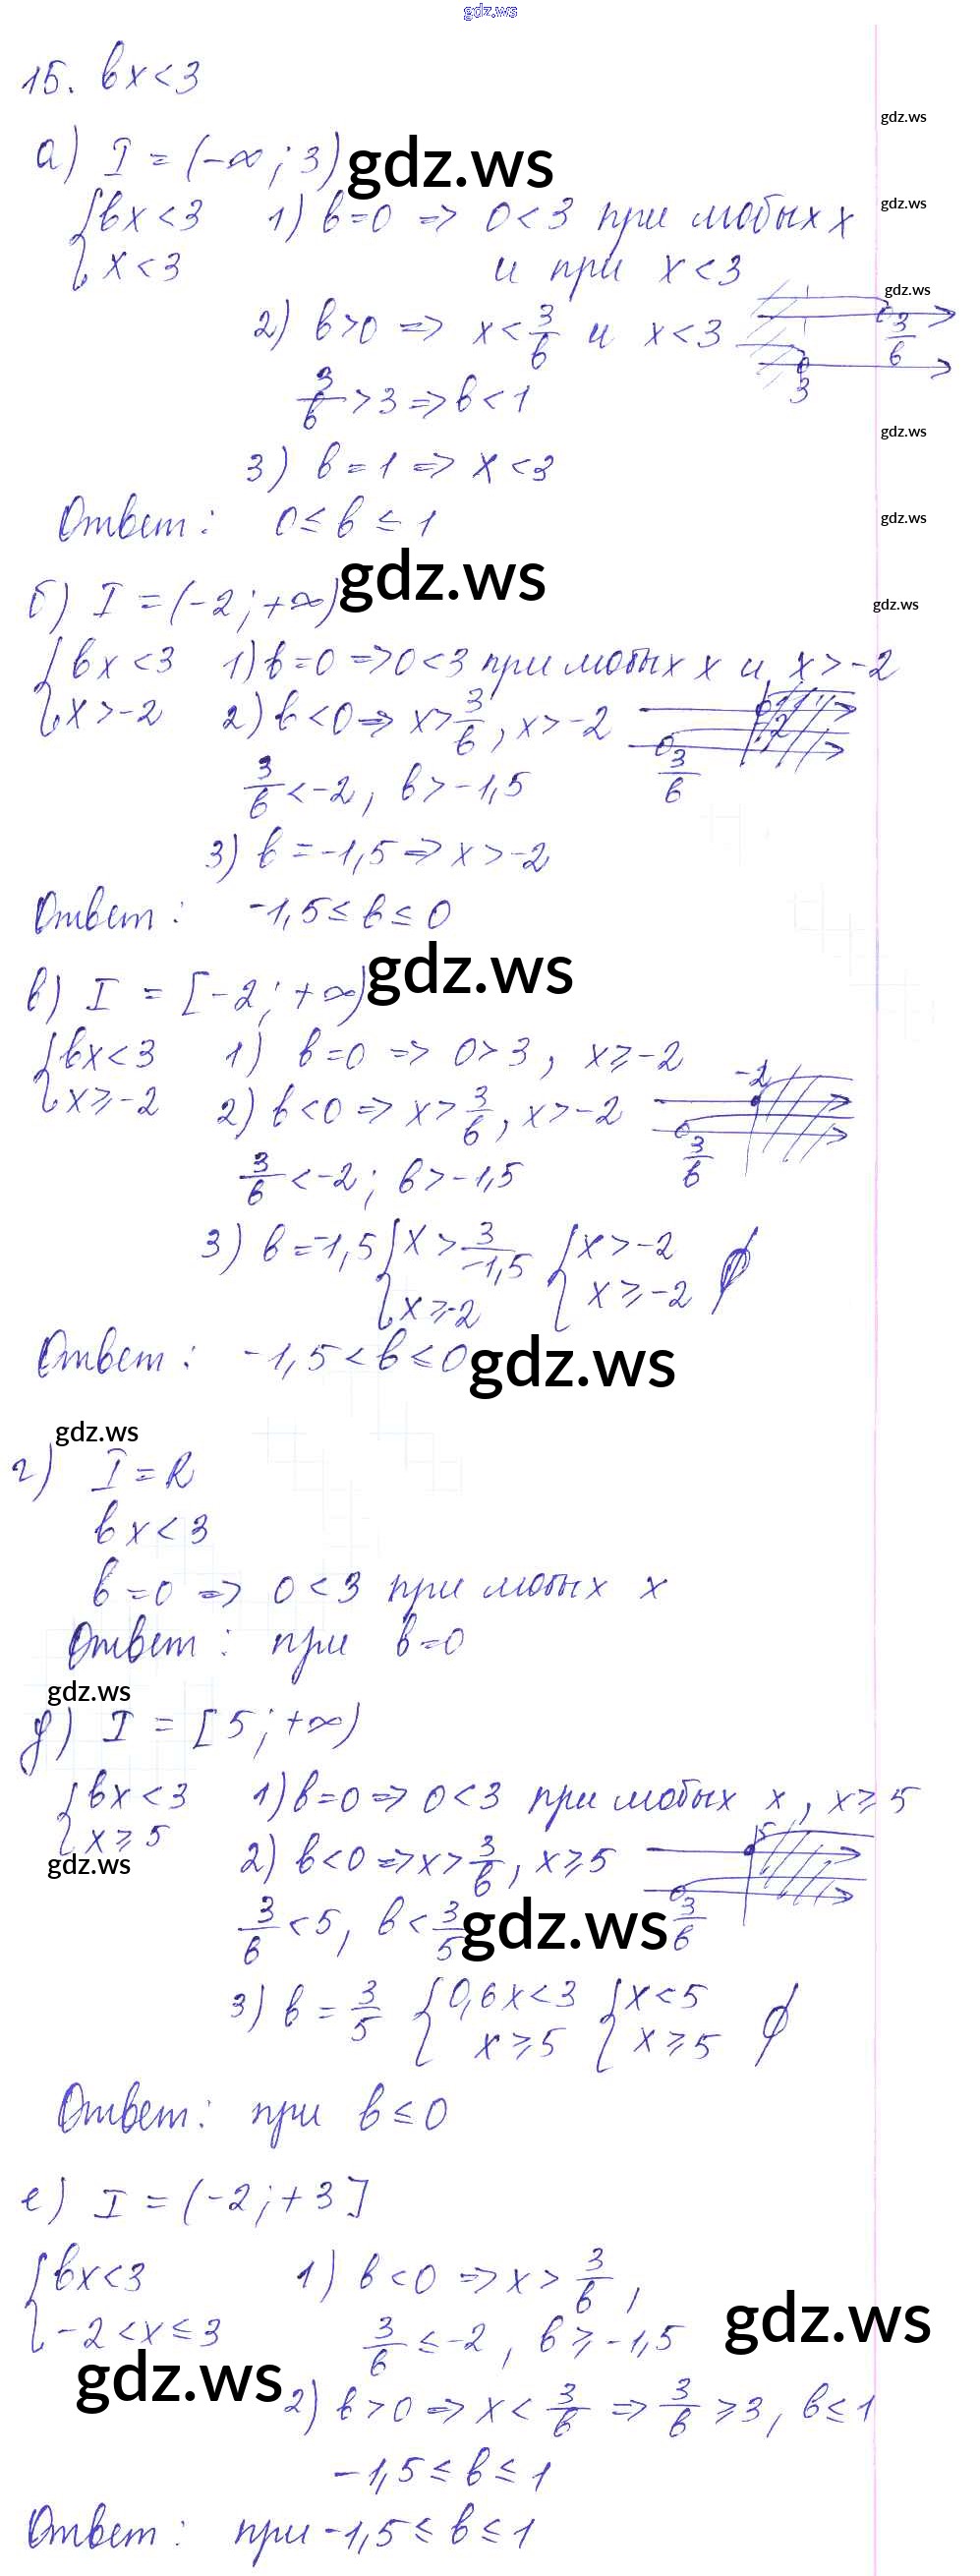 gdz.ws
15. bx<3
gdz.ws
а) I = (-∞; 3) gdz.ws
{bx<3 1) b=0 => 0<3 при любых x
gdz.ws
x<3 и при x<3
gdz.ws
2) b>0 => x<3/b и x<3
3/b
3/b>3 => b<1
3
gdz.ws
3) b=1 => x<3
Ответ: 0≤b≤1
gdz.ws
б) I = (-2; +∞) gdz.ws
gdz.ws
{bx<3 1) b=0 => 0<3 при любых x и x>-2
x>-2 2) b<0 => x>3/b, x>-2
-2
3/b
3/b<-2, b>-1,5
3) b=-1,5 => x>-2
Ответ: -1,5≤b≤0
в) I = [-2; +∞) gdz.ws
{bx<3 1) b=0 => 0>3, x≥-2
x≥-2 2) b<0 => x>3/b, x>-2
-2
3/b
3/b<-2; b>-1,5
3) b=-1,5 {x>3/-1,5 {x>-2
x≥-2 x≥-2 ∅
Ответ: -1,5<b≤0 gdz.ws
gdz.ws
г) I = R
bx<3
b=0 => 0<3 при любых x
Ответ: при b=0
gdz.ws
д) I = [5; +∞)
{bx<3 1) b=0 => 0<3 при любых x, x≥5
x≥5
gdz.ws
2) b<0 => x>3/b, x≥5
5
3/b
3/b<5, b<3/5 gdz.ws
3) b=3/5 {0,6x<3 {x<5
x≥5 x≥5 ∅
Ответ: при b≤0
е) I = (-2; +3]
{bx<3 1) b<0 => x>3/b,
-2<x≤3 3/b≤-2, b≥-1,5 gdz.ws
gdz.ws
2) b>0 => x<3/b => 3/b≥3, b≤1
-1,5≤b≤1
Ответ: при -1,5≤b≤1